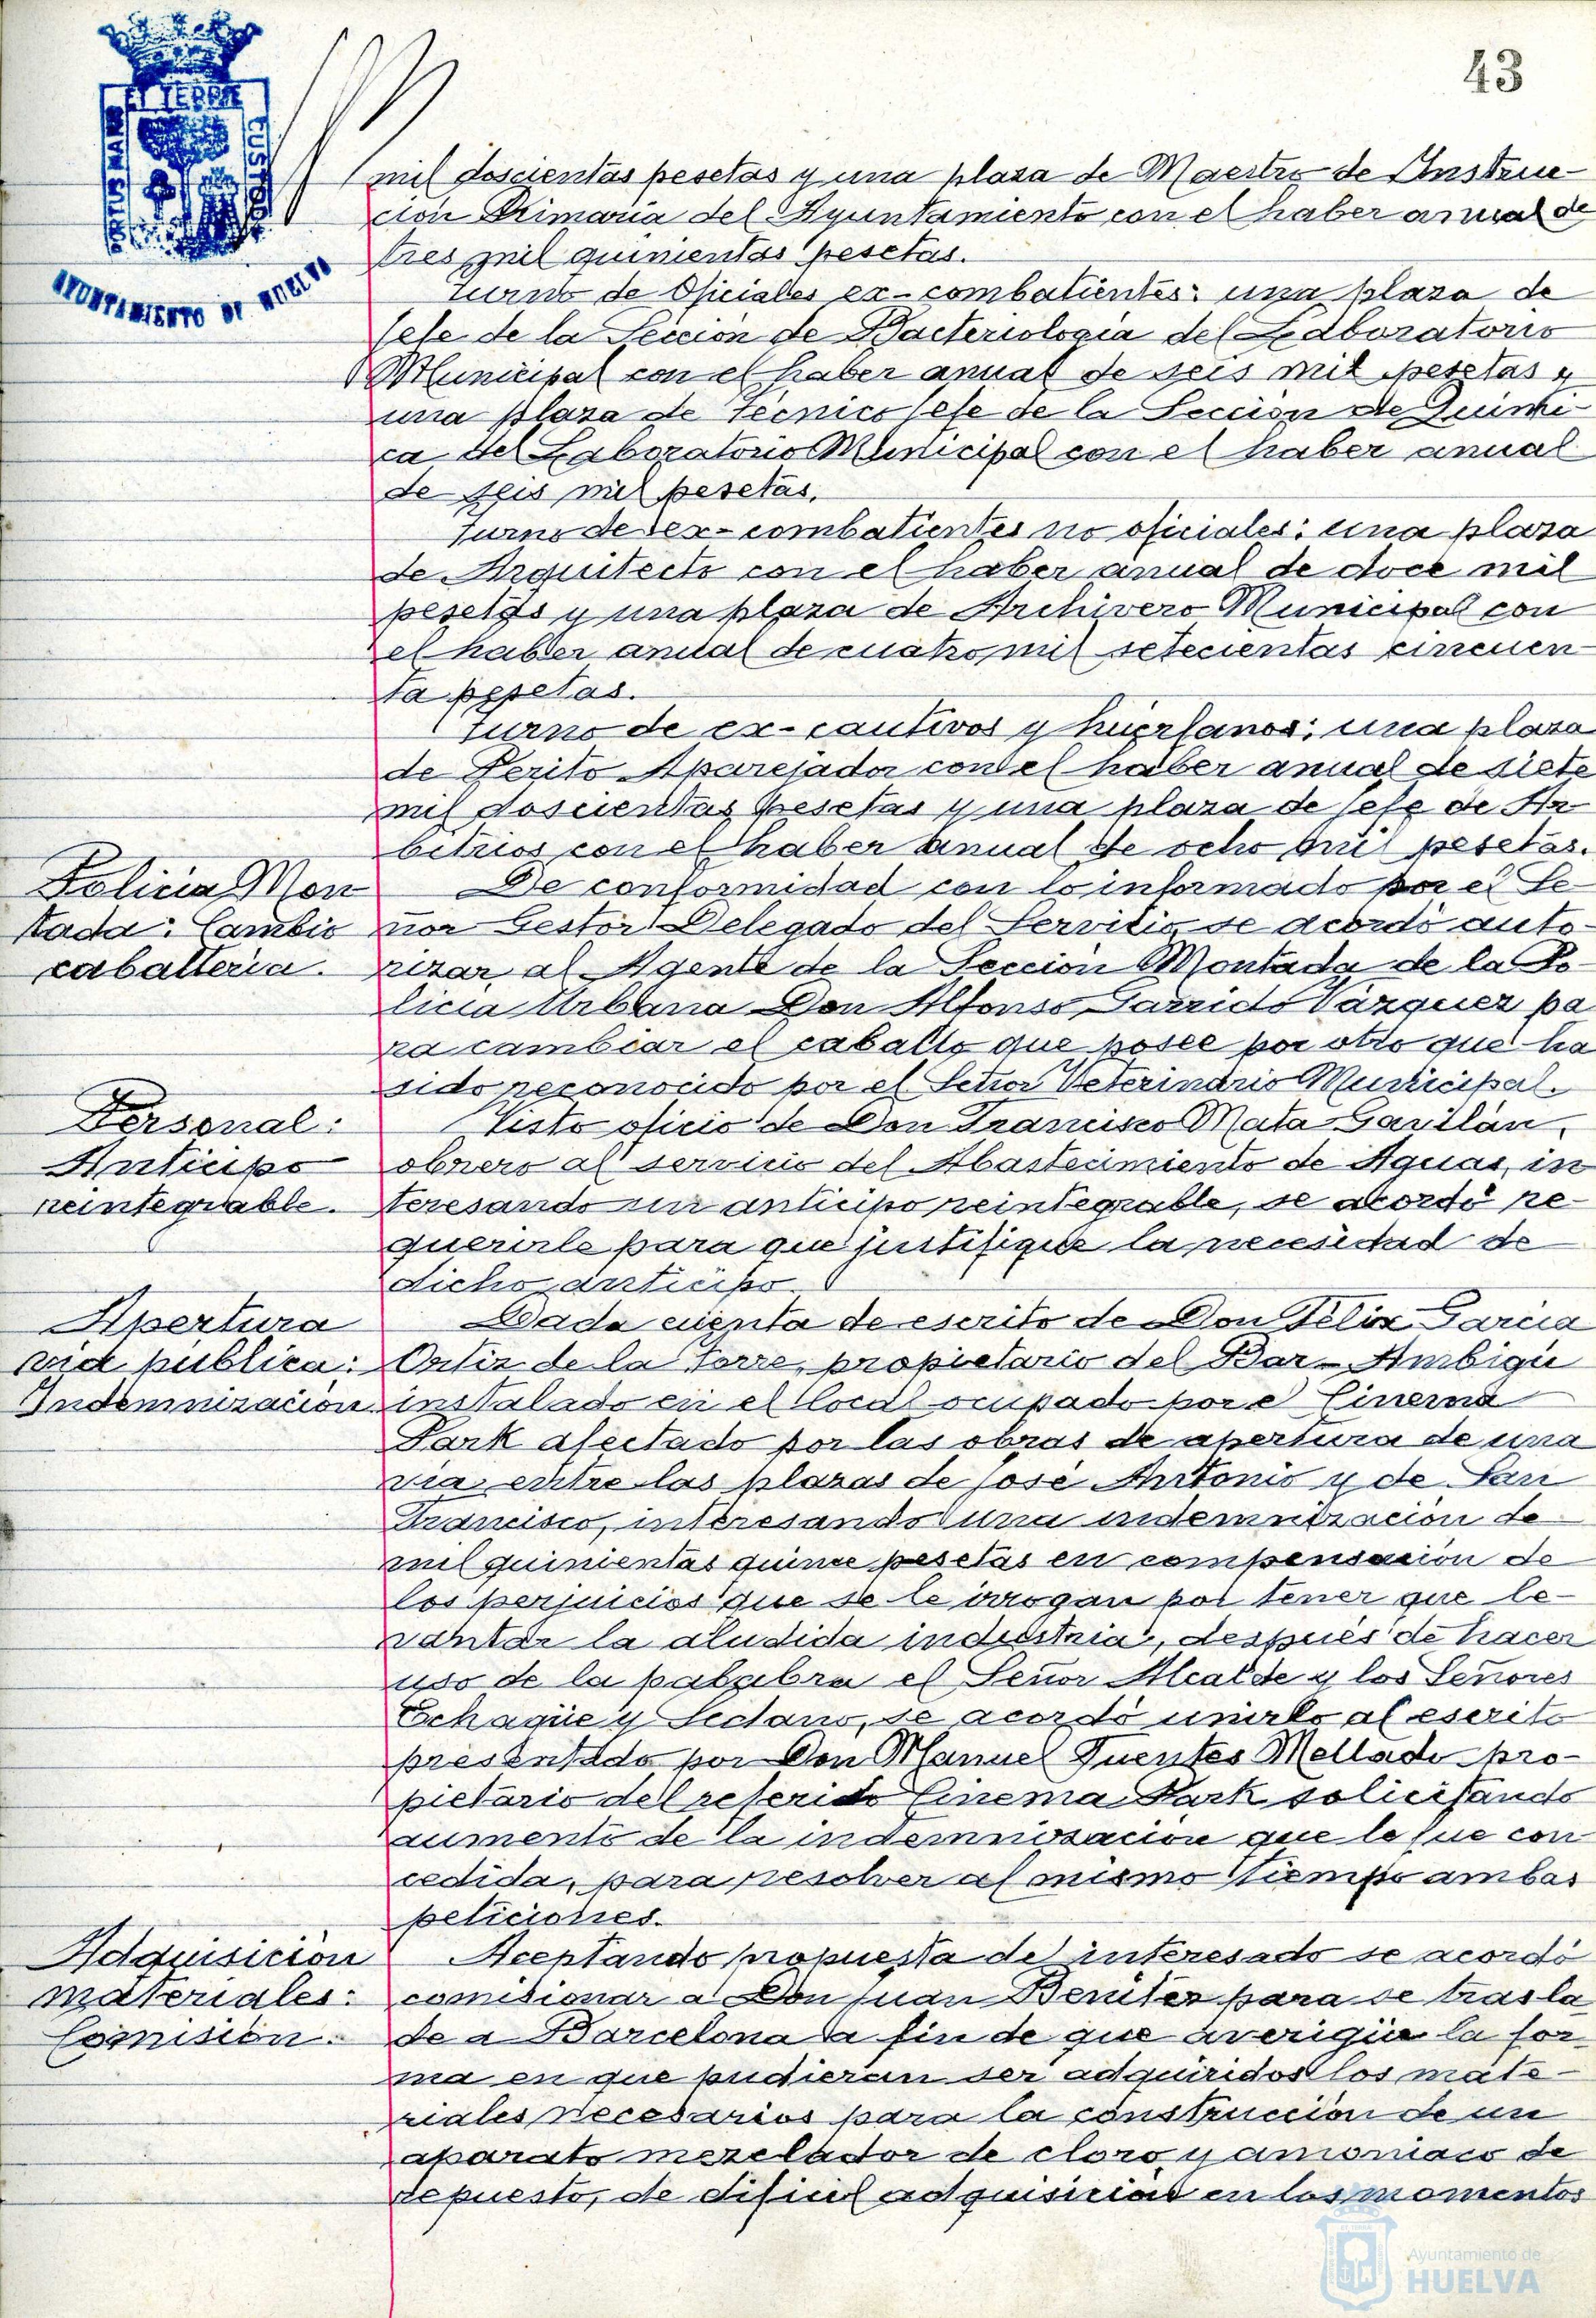 43
PORTUS MARIS
ET TERRE
CUSTODIA
AYUNTAMIENTO DE HUELVA
mil doscientas pesetas y una plaza de Maestro de Instruc-
ción Primaria del Ayuntamiento con el haber anual de
tres mil quinientas pesetas.
Turno de Oficiales ex-combatientes: una plaza de
Jefe de la Sección de Bacteriología del Laboratorio
Municipal con el haber anual de seis mil pesetas y
una plaza de Técnico Jefe de la Sección de Quími-
ca del Laboratorio Municipal con el haber anual
de seis mil pesetas.
Turno de ex-combatientes no oficiales: una plaza
de Arquitecto con el haber anual de doce mil
pesetas y una plaza de Archivero Municipal con
el haber anual de cuatro mil setecientas cincuen-
ta pesetas.
Turno de ex-cautivos y huérfanos: una plaza
de Perito Aparejador con el haber anual de siete
mil doscientas pesetas y una plaza de Jefe de Ar-
bitrios con el haber anual de ocho mil pesetas.
Policia Mon
tada: Cambio
caballeria.
De conformidad con lo informado por el Se-
ñor Gestor Delegado del Servicio se acordó auto-
rizar al Agente de la Sección Montada de la Po-
licia Urbana Don Alfonso Garrido Vázquez pa
ra cambiar el caballo que posee por otro que ha
sido reconocido por el Señor Veterinario Municipal.
Personal:
Anticipo
reintegrable.
Visto oficio de Don Francisco Mata Gavilán,
obrero al servicio del Abastecimiento de Aguas, in
teresando un anticipo reintegrable, se acordó re-
querirle para que justifique la necesidad de
dicho anticipo.
Apertura
via pública:
Indemnización
Dada cuenta de escrito de Don Félix Garcia
Ortiz de la Torre, propietario del Bar-Ambigú
instalado en el local ocupado por el Cinema
Park afectado por las obras de apertura de una
via entre las plazas de José Antonio y de San
Francisco, interesando una indemnización de
mil quinientas quince pesetas en compensación de
los perjuicios que se le irrogan por tener que le-
vantar la aludida industria, después de hacer
uso de la palabra el Señor Alcalde y los Señores
Echagüe y Seclano, se acordó unirlo al escrito
presentado por Don Manuel Fuentes Mellado pro-
pietario del referido Cinema Park solicitando
aumento de la indemnización que le fue con
cedida, para resolver al mismo tiempo ambas
peticiones.
Adquisición
materiales:
Comisión.
Aceptando propuesta del interesado se acordó
comisionar a Don Juan Benitez para se trasla
de a Barcelona a fin de que averigüe la for
ma en que pudieran ser adquiridos los mate-
riales necesarios para la construcción de un
aparato mezclador de cloro y amoniaco de
repuesto, de dificil adquisición en los momentos
Ayuntamiento de
HUELVA